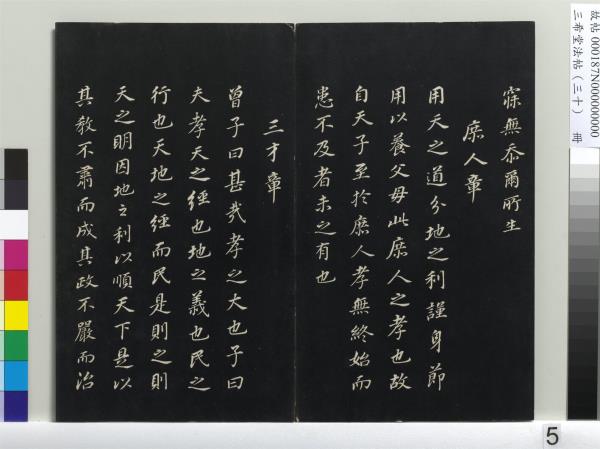 寐無忝爾所生
庶人章
用天之道分地之利謹身節
用以養父母此庶人之孝也故
自天子至於庶人孝無終始而
患不及者未之有也
三才章
曾子曰甚哉孝之大也子曰
夫孝天之經也地之義也民之
行也天地之經而民是則之則
天之明因地之利以順天下是以
其教不肅而成其政不嚴而治
故帖000187N000000000
三希堂法帖(三十) 冊
5